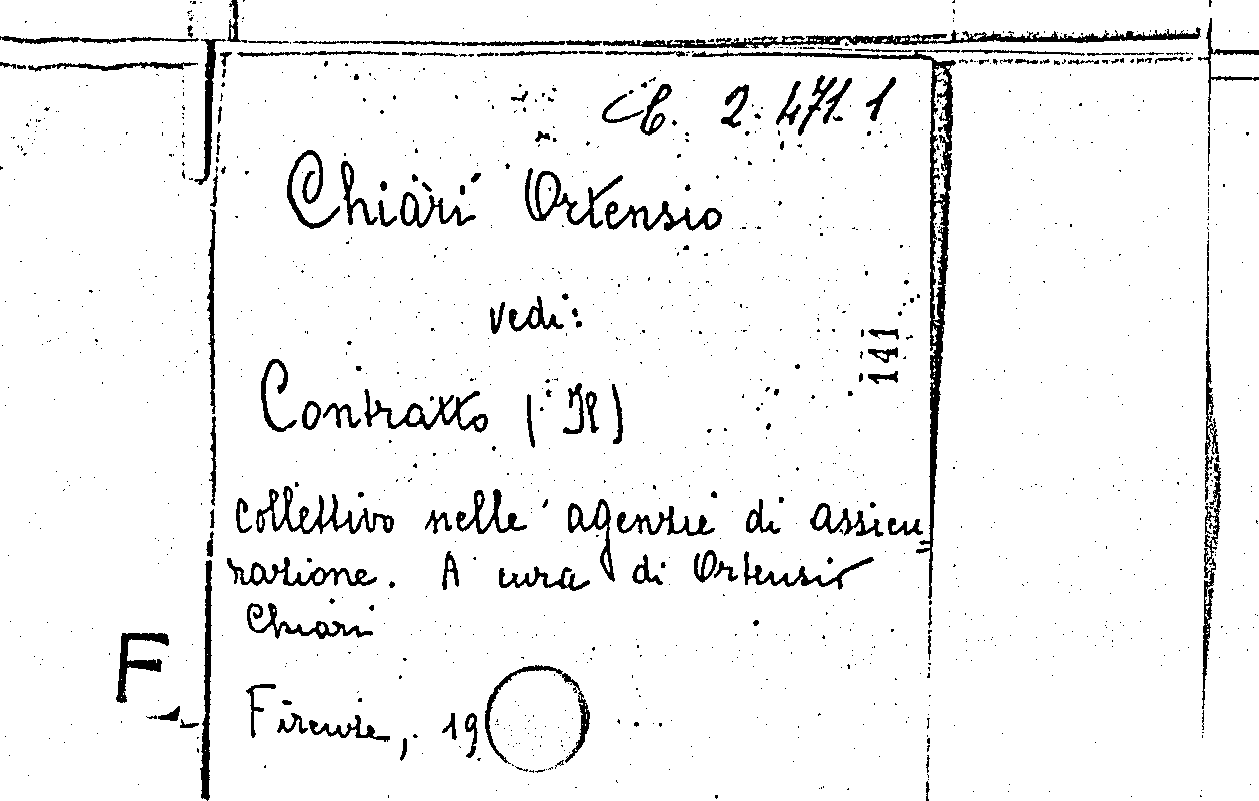 C. 2. 471. 1
Chiari Ortensio
vedi:
141
Contratto (Il)
collettivo nelle agenzie di assicu=
razione. A cura di Ortensio
Chiari
F
Firenze, 19